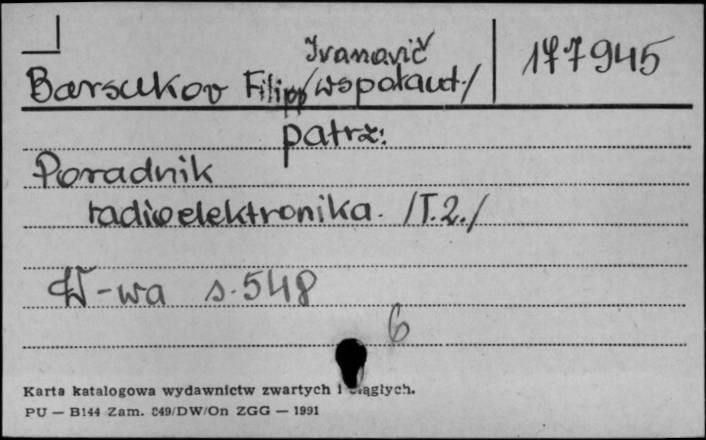 Ivanovič
Barsukov Filipp /wspołaut./ 177945
patrz:
Poradnik
radioelektronika. /T.2./
W-wa s.548
6
Karta katalogowa wydawnictw zwartych i ciągłych.
PU — B144 Zam. 849/DW/On ZGG — 1991